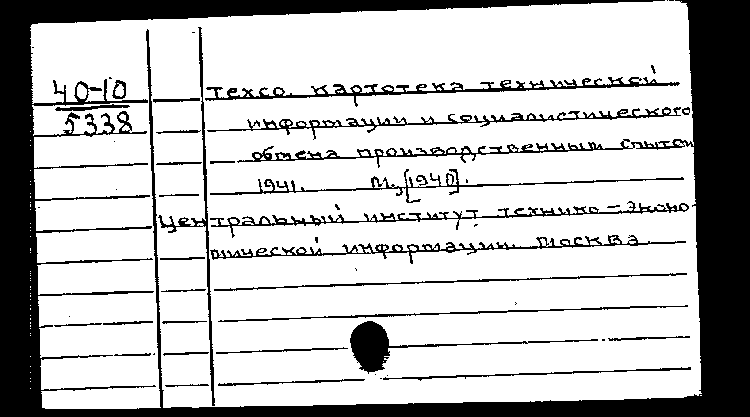 40-10
5338
Техсо. картотека технической
информации и социалистического
обмена производственным опытом
1941. М., [1940].
Центральный институт технико-эконо-
мической информации. Москва